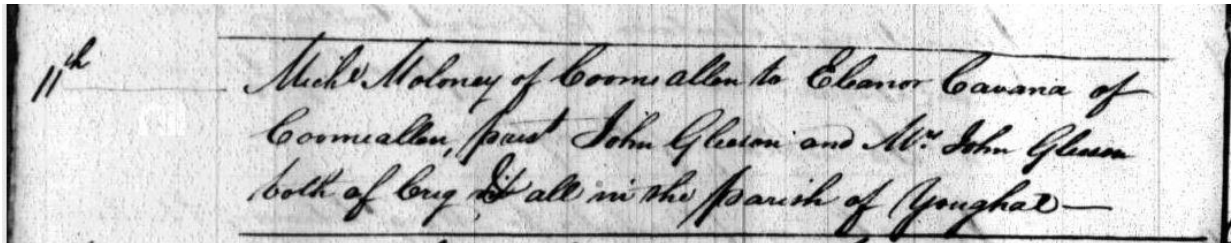 11th
Michl Moloney of Coomeallen to Eleanor Cavana of
Coomeallen, prest John Gleeson and Mrs John Gleeson
both of Creg all in the parish of Youghal —